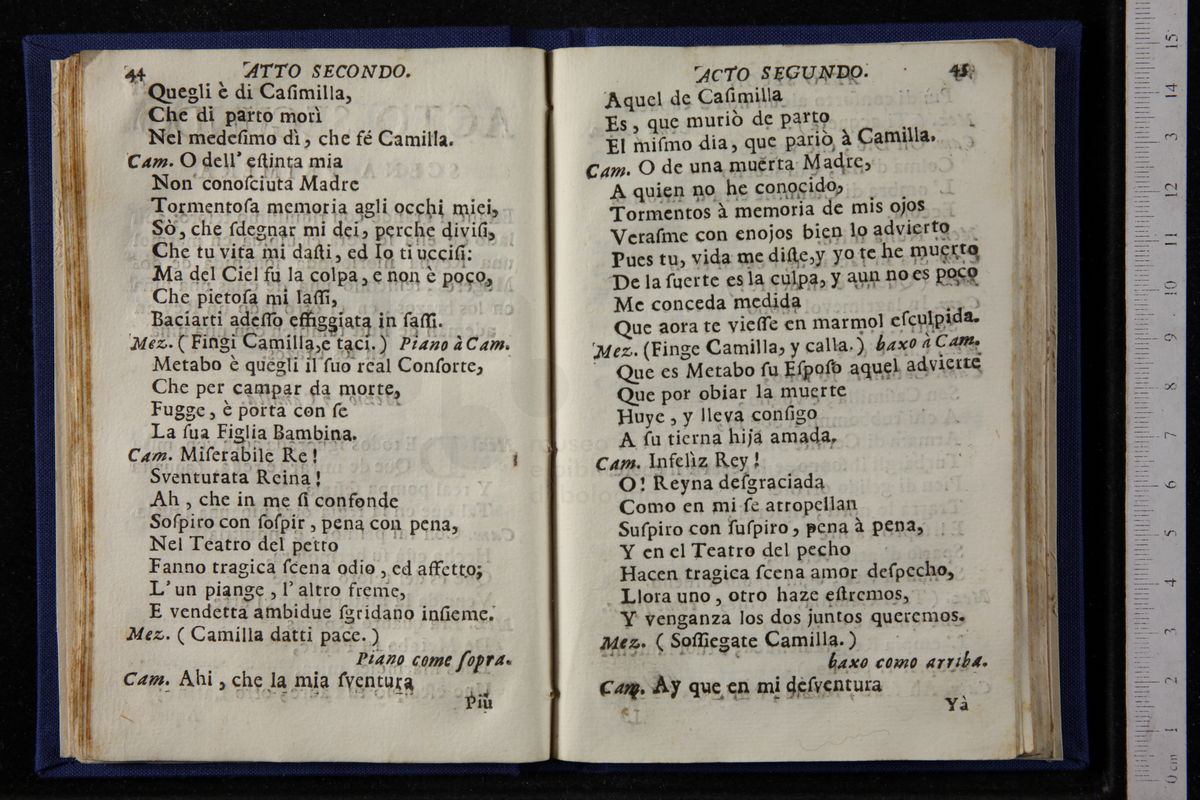 44 ATTO SECONDO.
Quegli è di Caſimilla,
Che di parto morì
Nel medeſimo dì, che fé Camilla.
Cam. O dell' eſtinta mia
Non conoſciuta Madre
Tormentoſa memoria agli occhi miei,
Sò, che ſdegnar mi dei, perche diviſi,
Che tu vita mi daſti, ed Io ti ucciſi:
Ma del Ciel fu la colpa, e non è poço,
Che pietoſa mi laſſi,
Baciarti adeſſo effiggiata in ſaſſi.
Mez. (Fingi Camilla,e taci.) Piano à Cam.
Metabo è quegli il ſuo real Conſorte,
Che per campar da morte,
Fugge, è porta con ſe
La ſua Figlia Bambina.
Cam. Miſerabile Re!
Sventurata Reina!
Ah, che in me ſi confonde
Soſpiro con ſoſpir, pena con pena,
Nel Teatro del petto
Fanno tragica ſcena odio, ed affetto;
L'un piange, l'altro freme,
E vendetta ambidue ſgridano inſieme.
Mez. (Camilla datti pace.)
Piano come ſopra.
Cam. Ahi, che la mia ſventura
Più
ACTO SEGUNDO. 45
Aquel de Caſimilla
Es, que muriò de parto
El miſmo dia, que pariò à Camilla.
Cam. O de una muerta Madre,
A quien no he conocido,
Tormentos à memoria de mis ojos
Veraſme con enojos bien lo advierto
Pues tu, vida me diſte,y yo te he muerto
De la ſuerte es la culpa, y aun no es poco
Me conceda medida
Que aora te vieſſe en marmol eſculpida.
Mez. (Finge Camilla, y calla.) baxo à Cam.
Que es Metabo ſu Eſpoſo aquel advierte
Que por obiar la muerte
Huye, y lleva conſigo
A ſu tierna hija amada.
Cam. Infelìz Rey!
O! Reyna deſgraciada
Como en mi ſe atropellan
Suſpiro con ſuſpiro, pena à pena,
Y en el Teatro del pecho
Hacen tragica ſcena amor deſpecho,
Llora uno, otro haze eſtremos,
Y venganza los dos juntos queremos.
Mez. (Soſſiegate Camilla.)
baxo como arriba.
Cam. Ay que en mi deſventura
Yà
0 cm 1 2 3 4 5 6 7 8 9 10 11 12 13 14 15